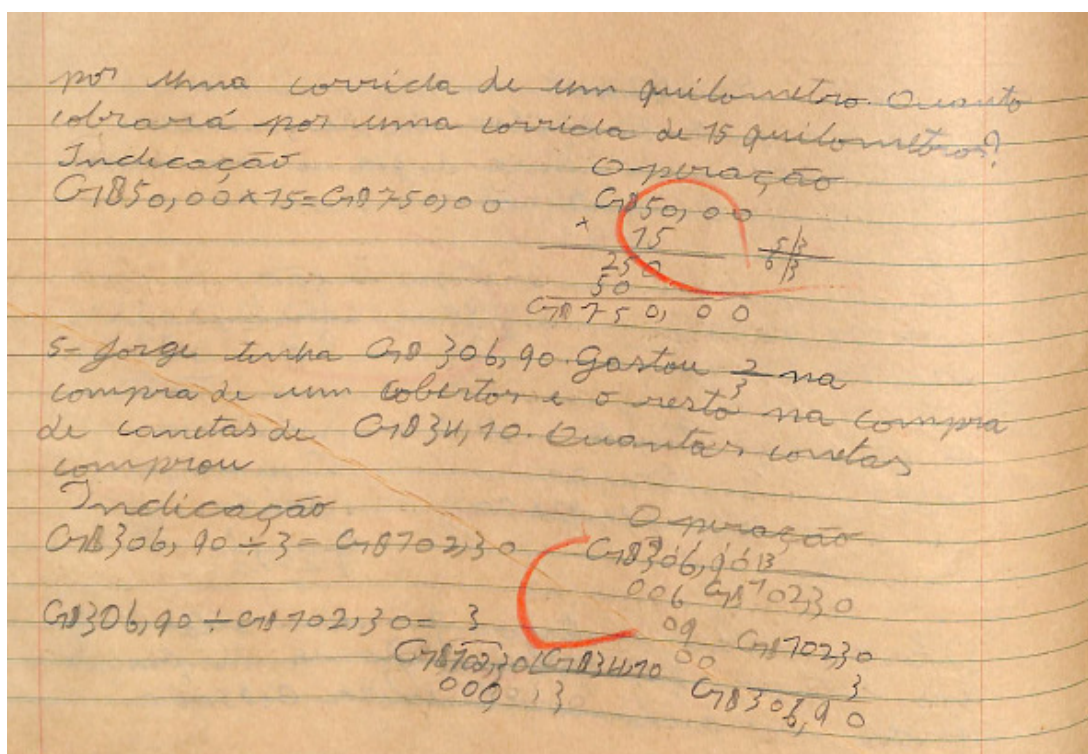 por uma corrida de um quilometro. Quanto
cobrará por uma corrida de 15 quilometros?
Indicação
Cr$50,00 x 15 = Cr$750,00
Operação
Cr$50,00
x 15
250
50
Cr$750,00
5|3
6|3
5- Jorge tinha Cr$306,90. Gastou 2/3 na
compra de um cobertor e o resto na compra
de canetas de Cr$34,10. Quantas canetas
comprou
Indicação
Cr$306,90 ÷ 3 = Cr$102,30
Operação
Cr$306,90 | 3
006 Cr$102,30
09
00
Cr$306,90 ÷ Cr$102,30 = 3
Cr$10230
3
Cr$306,90
Cr$102,30 | Cr$34,10
000,3